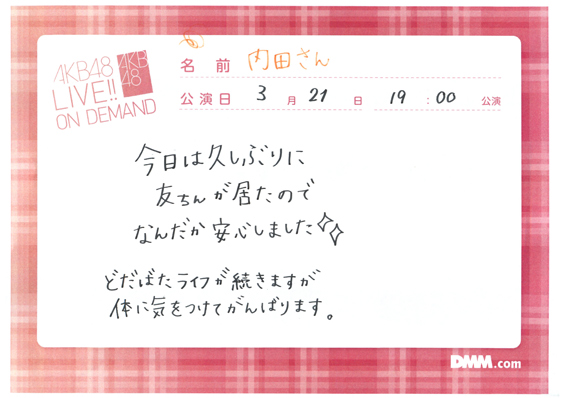 AKB48
LIVE!!
ON DEMAND
AKB
48
名前 内田さん
公演日 3月21日 19:00 公演
今日は久しぶりに
友ちんが居たので
なんだか安心しました
どだばたライフが続きますが
体に気をつけてがんばります。
DMM.com